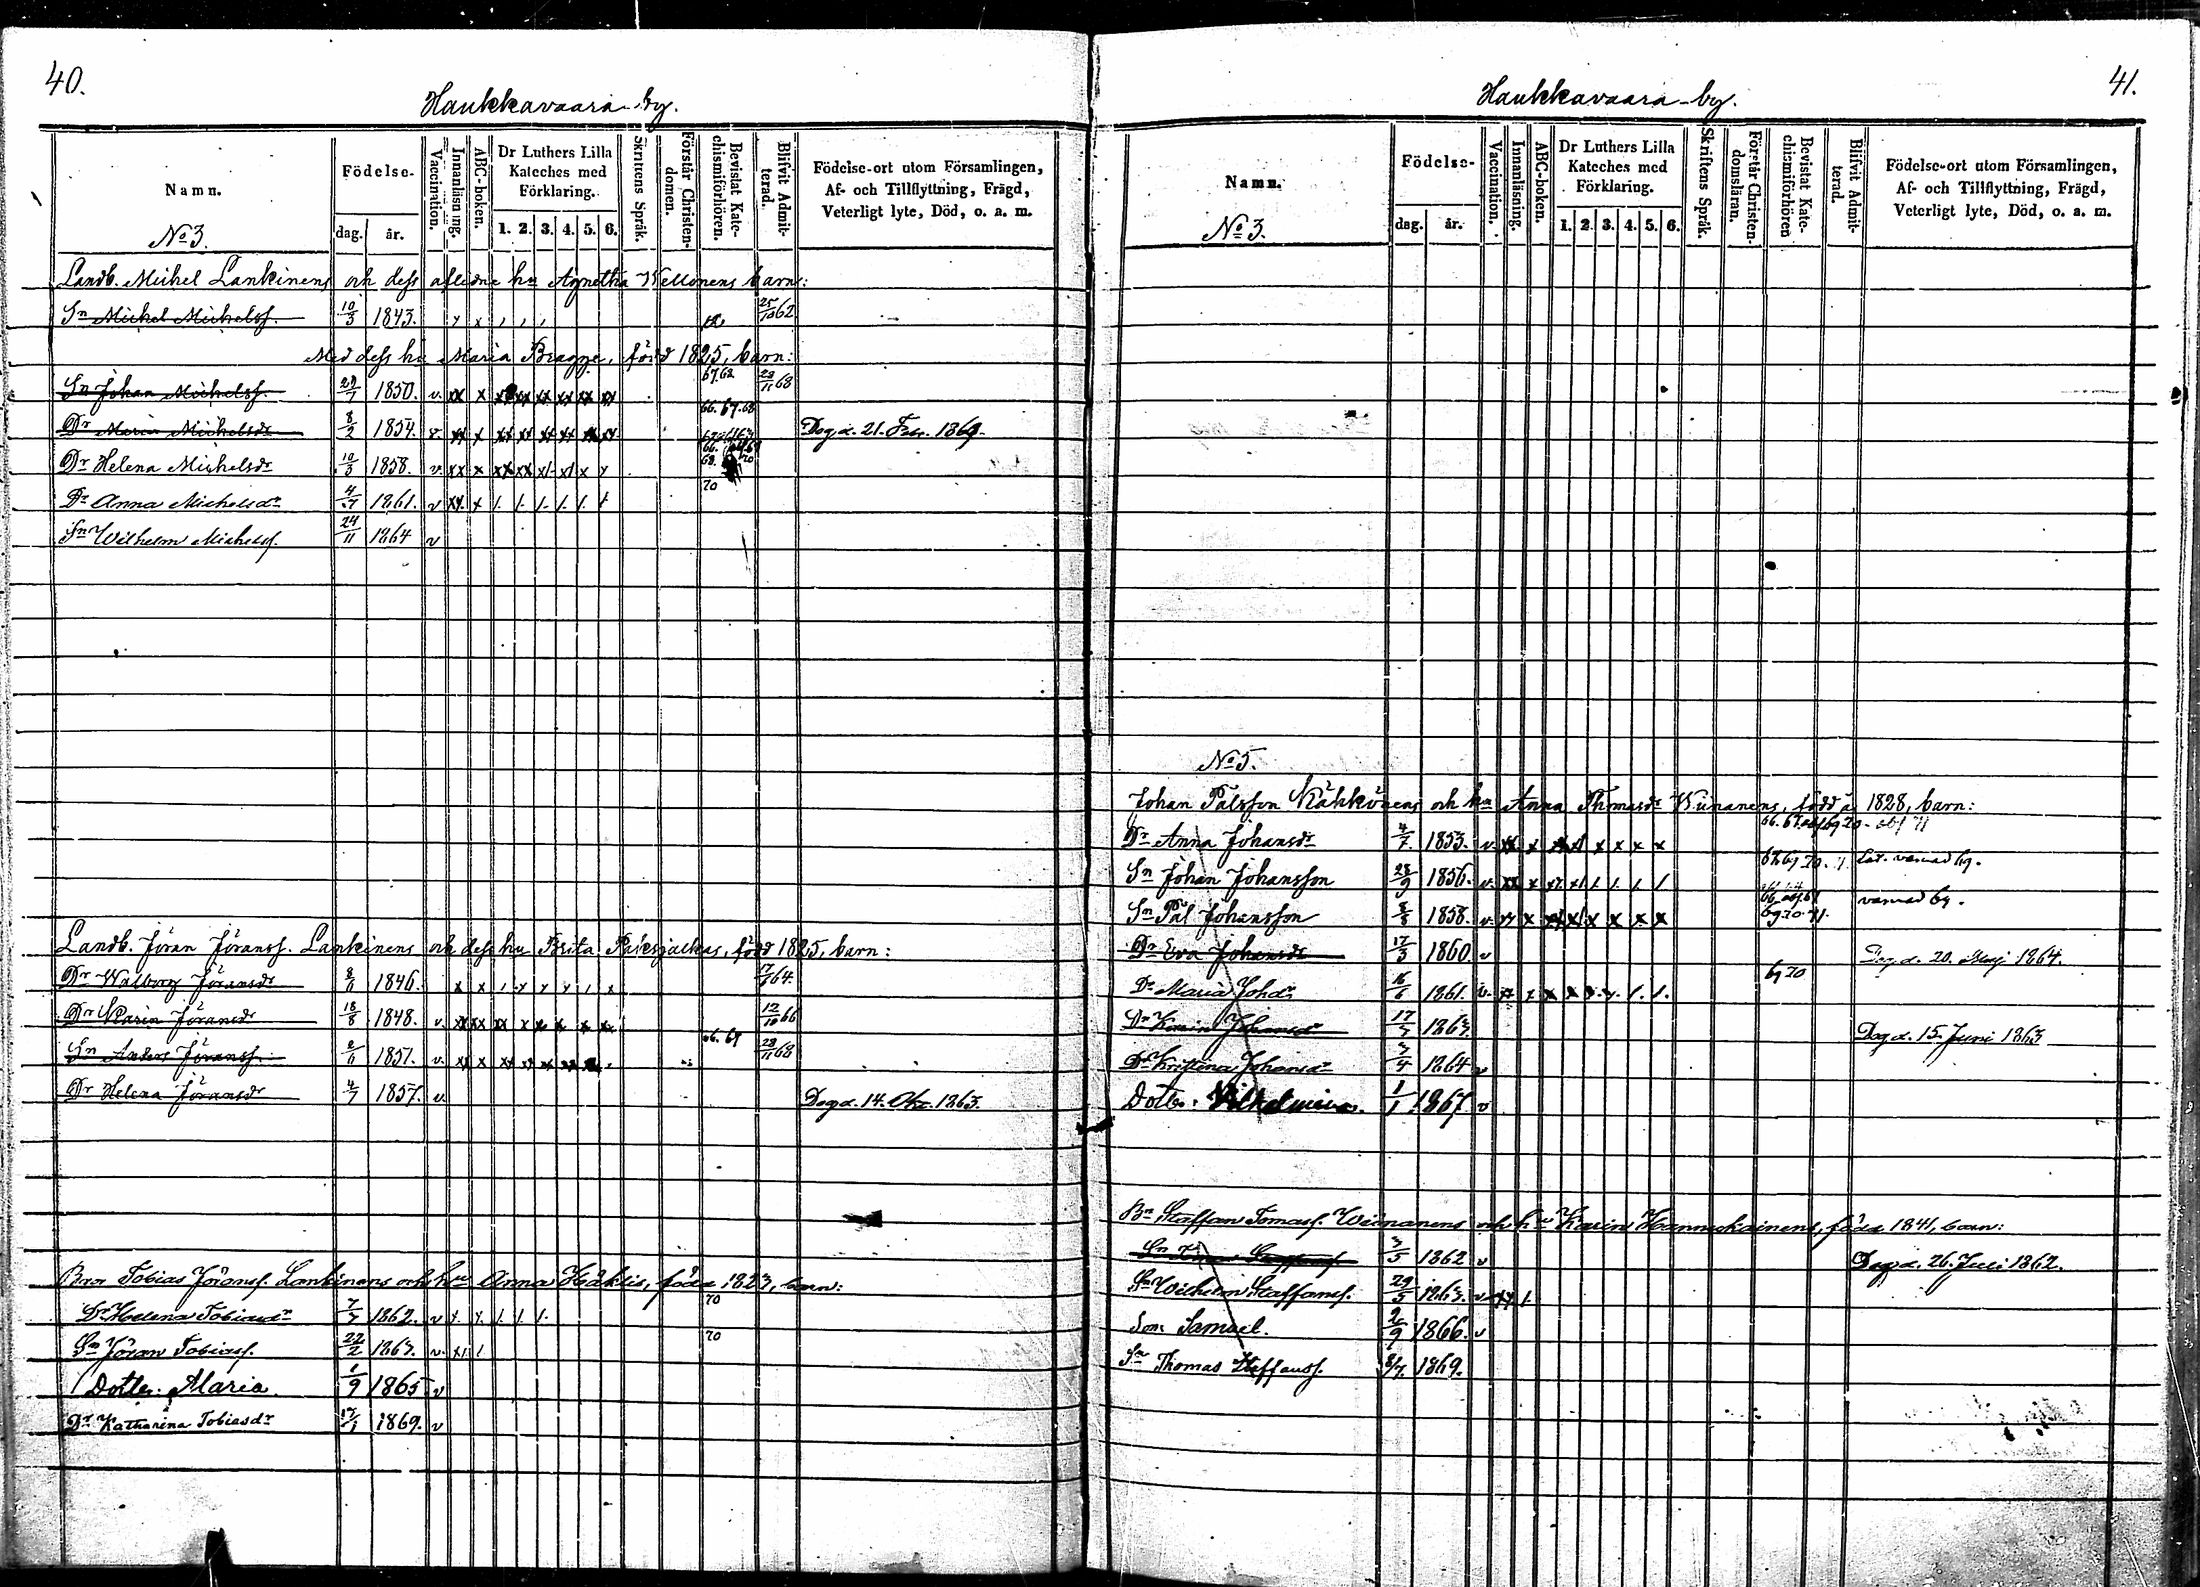 40.
Haukkavaara by.
Namn.
Födelse-
dag. år.
Vaccination.
Innanläsning.
ABC-boken.
Dr Luthers Lilla Kateches med Förklaring.
1. 2. 3. 4. 5. 6.
Skriftens Språk.
Förstår Christendomen.
Bevistat Katechismiförhören.
Blifvit Admitterad.
Födelse-ort utom Församlingen,
Af- och Tillflyttning, Frägd,
Veterligt lyte, Död, o. a. m.
No 3.
Landb. Michel Lankinens och dess aflidne hu Agnetha Wellonens barn:
Sn Michel Michelss. 10/3 1843. 25/10 62
Med dess hu Maria Bragge, född 1825, barn:
Sn Johan Michelss. 1850. v. 67.68
Dr Maria Michelsdr 8/2 1854. v. 66. 67. 68 Dog d. 21. Febr. 1869.
Dr Helena Michelsdr 10/3 1858. v.
Dr Anna Michelsdr 1861. v 70
Sn Wilhelm Michelss. 24/11 1864 v
Landb. Jöran Jöranss. Lankinens och dess hu Brita födд 1825, barn:
Dr Walborg Jöransdr 1846. 64.
Dr Karin Jöransdr 18/8 1848. v. 66
Sn Anders Jöranss. 1851. v. 68
Dr Helena Jöransdr 4/7 1857. v. Dog d. 14. 1863.
Bror Tobias Jöranss. Lankinens och hu Anna född 1823, barn:
Dr Helena Tobiasdr 1862. v 70
Sn Jöran Tobiass. 22/2 1863. v. 70
Dotter: Maria. 1/9 1865 v
Dr Katharina Tobiasdr 1869. v
41.
Haukkavaara by.
Namn.
Födelse-
dag. år.
Vaccination.
Innanläsning.
ABC-boken.
Dr Luthers Lilla Kateches med Förklaring.
1. 2. 3. 4. 5. 6.
Skriftens Språk.
Förstår Christendomsläran.
Bevistat Katechismiförhören
Blifvit Admitterad.
Födelse-ort utom Församlingen,
Af- och Tillflyttning, Frägd,
Veterligt lyte, Död, o. a. m.
No 3.
No 5.
Johan Pålsson Näkkönens och hu Anna Thmasdr Wiinanens, född å 1828, barn:
Dr Anna Johansdr 4/7 1853. v.
Sn Johan Johansson 28/9 1856. v. varnad 69.
Sn Pål Johansson 1858. v. varnad 69.
Dr Eva Johansdr 17/3 1860. v Dog d. 20. Maj 1864.
Dr Maria Johdr 16/6 1861. v. 69 70
Dr Karin Johansdr 1863. Dog d. 15 Juni 1863
Dr Kristina Johansdr 1864 v
Dotter: Vilhelmina. 1/1 1867 v
Bn Staffan Tomass. Wiinanens och hu Karin född 1841, barn:
Sn Staffanss. 3/5 1862 v Dog d. 26. Juli 1862.
Sn Wilhelm Staffanss. 29/5 1863. v
Son Samuel. 2/9 1866. v
Sn Thomas Staffanss. 8/7. 1869.